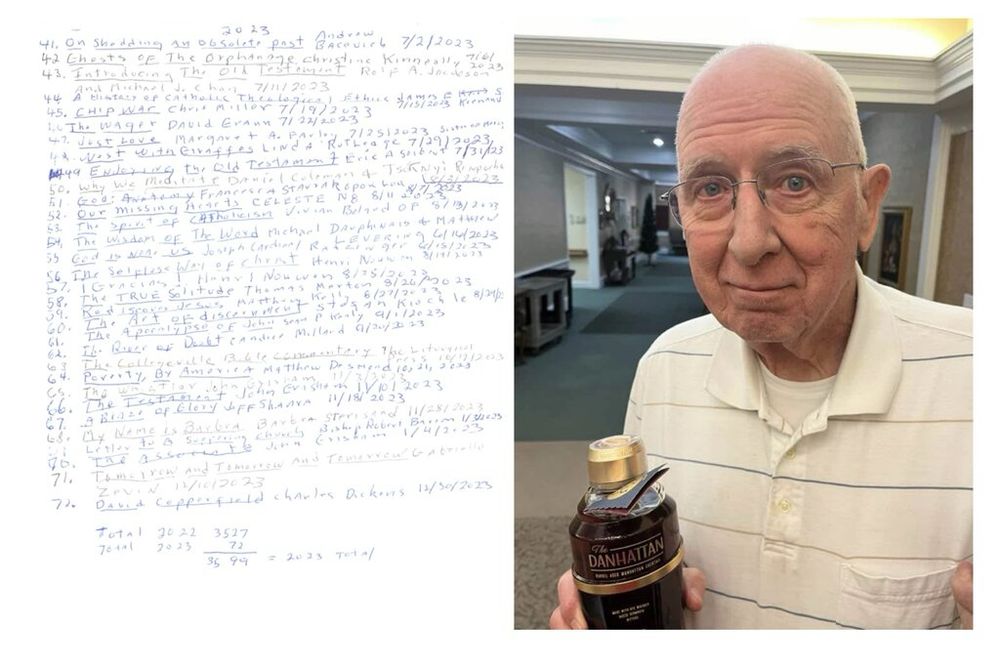 2023
41. On Shedding an Obsolete past Andrew
Bacevich 7/2/2023
42 Ghosts of The Orphanage christine Kenneally 7/6/
2023
43. Introducing The Old Testament Rolf A. Jacobson
And Michael J. Chan 7/11/2023
44 A History of Catholic Theological Ethics James F
7/15/2023 Keenan
45. CHIP WAR Chris Miller 7/19/2023
The Wager DAVID Grann 7/22/2023
47. Just Love Margaret A. Farley 7/25/2023
48. West with Giraffes LINDA Rutledge 7/29/2023
49 ENJOYING the Old Testament Eric A 7/31/23
50. Why We Meditate Daniel Goleman & Tsoknyi Rinpoche
51. God: Anatomy Francesca 8/7/2023
52. Our Missing Hearts CELESTE NG 8/11 2023
53. The Spirit of Catholicism Vivian Boland OP 8/13/2023
54. The Wisdom of The Word Michael Dauphinais & MATTHEW
LEVERING 6/14/2023
55 God is near us Joseph Cardinal Ratzinger 8/15/2023
56. The Selfless Way of Christ Henri Nouwen 8/19/2023
57. Henri Nouwen 8/25/2023
58. The TRUE Solitude Thomas Merton 8/26/2023
59. Jesus Matthew 8/27/2023
60. The Art of discernment Stefan Kiechle 8/29/
61. The Apocalypse of John Sean P Kealy 9/1/2023
62. The River of Doubt Candice Millard 9/20/2023
63 The Collegeville Bible Commentary The Liturgical
Press 10/12/2023
64. Poverty, By America Matthew Desmond 10, 21, 2023
65. The John Grisham 11/3/2023
66. The Testament John Grisham 11/10/2023
67. A Blaze of Glory Jeff Shaara 11/18/2023
68. My Name is Barbra Barbra Streisand 11/28/2023
Letter to A Suffering Church Bishop Robert Barron
70. The Associate John Grisham 1/4/2023
71. Tomorrow and Tomorrow and Tomorrow Gabrielle
Zevin 12/10/2023
72. David Copperfield Charles Dickens 12/30/2023
Total 2022 3527
Total 2023 72
3599 = 2023 Total
The
DANHATTAN
BARREL AGED MANHATTAN COCKTAIL
MADE WITH RYE WHISKEY
SWEET VERMOUTH
BITTERS